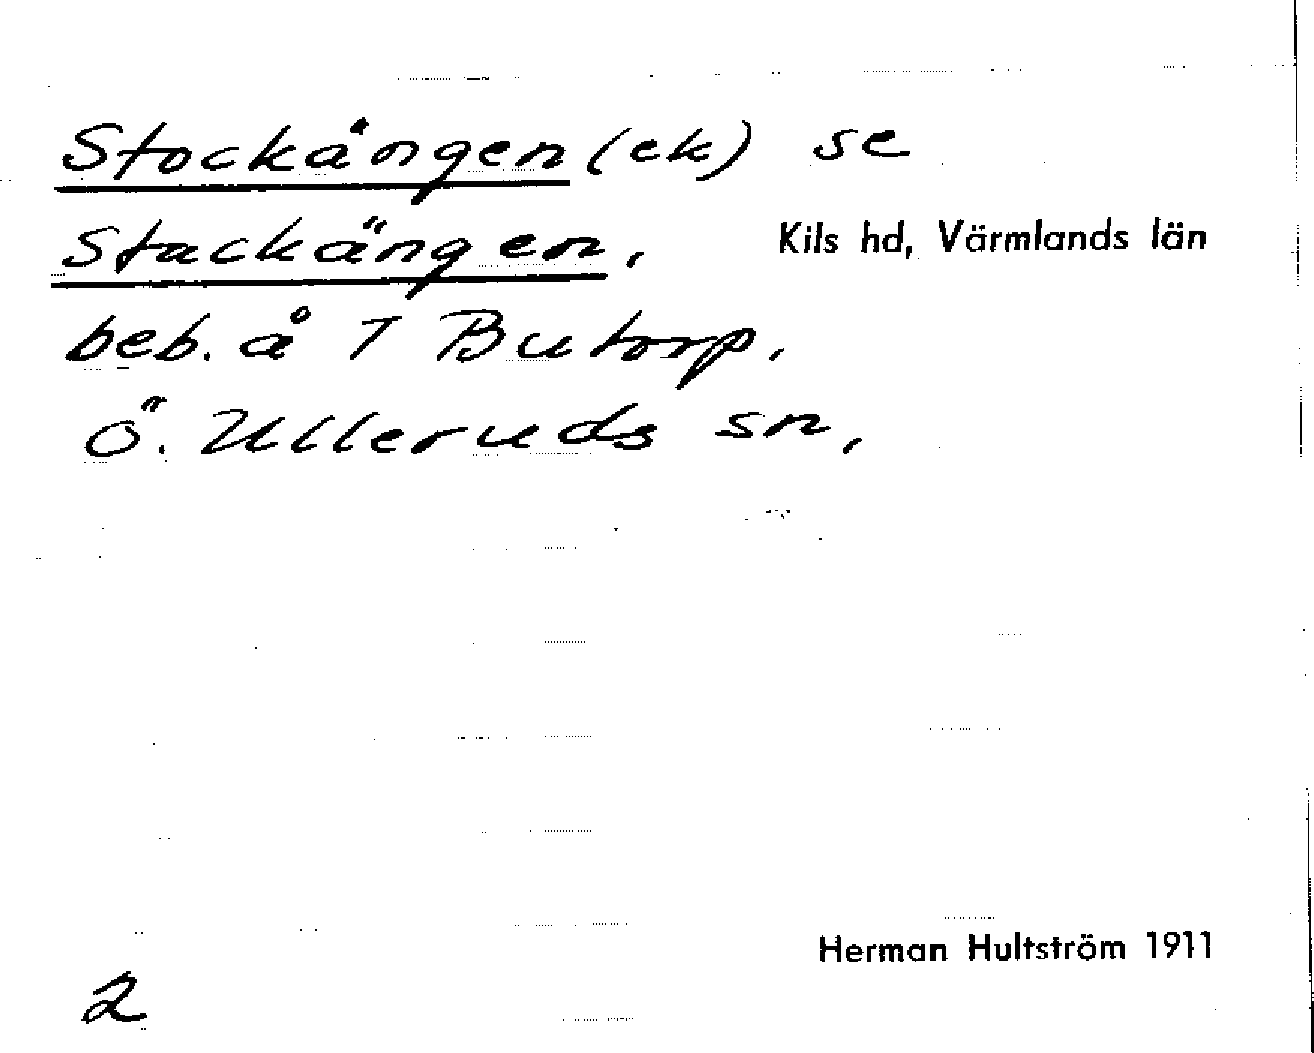 Stockängen (ek) se
Stackängen,
Kils hd, Värmlands län
beb. å T Butorp,
Ö. Ulleruds sn,
Herman Hultström 1911
2